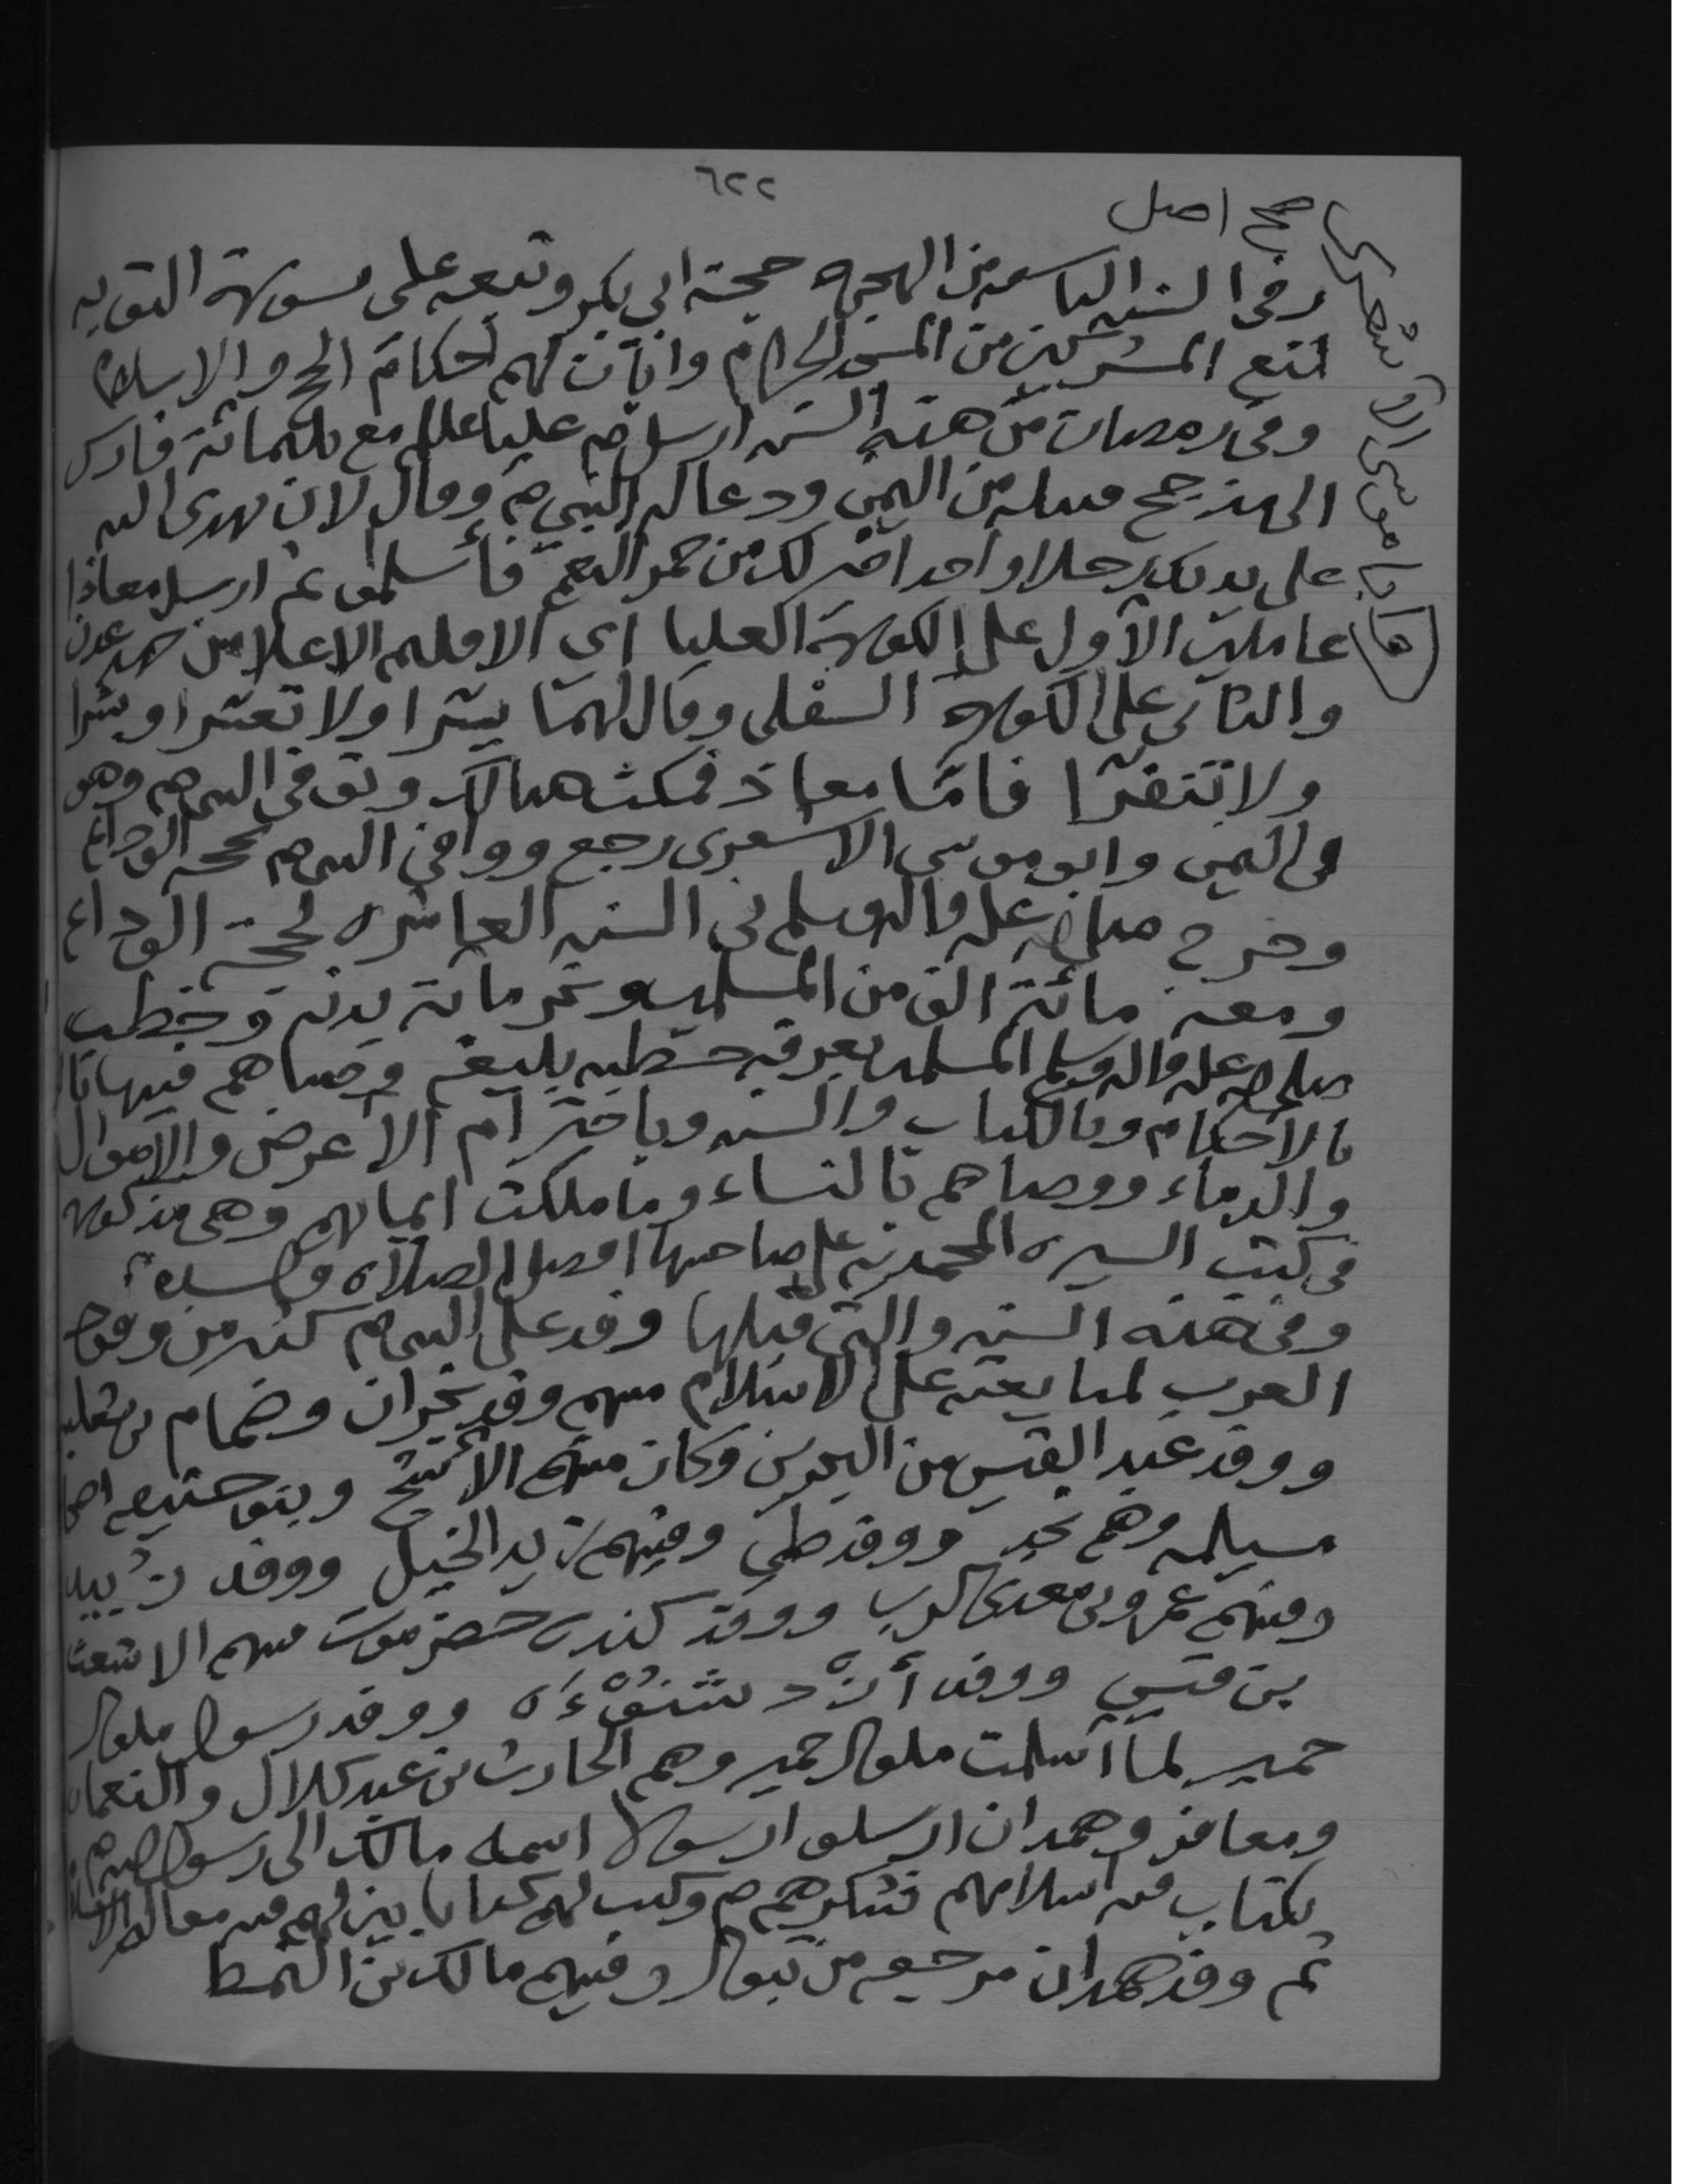 ٦٢٢
صح اصل
وفي السنه التاسعه من الهجره حجة ابي بكر وتبعه علي بسورة التوبه
لمنع المشركين من المسجد الحرام وابان لهم احكام الحج والاسلام
وفي رمضان من هذه السنه ارسل ص عليا عللم مع ثلثمائة فارس
الى مذحج قبيله من اليمن ودعا له النبي ص وقال لان يهدى الله
على يديك رجلا واحدا خير لك من حمر النعم فأسلموا ثم ارسل معاذا
وابا موسى الاشعري
عاملين الأول على الكورة العليا اي الاقليم الاعلا من جهه عدن
والثاني على الكوره السفلى وقال لهما يسرا ولا تعسرا وبشرا
ولا تنفرا فامّا معاذ فمكث هنالك وتوفي النبي ص وهو
في اليمن وابو موسى الاشعري رجع ووافى النبي ص بحجة الوداع
وخرج صلى الله عليه واله وسلم في السنه العاشره لحجة الوداع
ومعه مائة الف من المسلمين ونحر مائة بدنه وخطب
صلى الله عليه واله وسلم المسلمين بعرفه خطبه بليغه وصاهم فيها
بالاحكام وبالكتاب والسنه وباحترام الاعرض والاموال
والدماء ووصاهم بالنساء وما ملكت ايمانهم وهي مذكوره
في كتب السيره المحمديه على صاحبها افضل الصلاة والسلام
وفي هذه السنه والتي قبلها وفد على النبي ص كثير من وفود
العرب لمبايعته على الاسلام منهم وفد نجران وضمام بن ثعلبه
ووفد عبد القيس من البحرين وكان منهم الأشج وبنو حنيفه
مسيلمه وهم نجد ووفد طي وفيهم زيد الخيل ووفد زُبيد
ومنهم عمرو بن معدي كرب ووفد كنده حضرموت منهم الاشعث
بن قيس ووفد أزد شنوءه ووفد رسول ملوك
حمير لما اسلمت ملوك حمير وهم الحارث بن عبد كلال والنعمان
ومعافر وهمدان ارسلوا رسولا اسمه مالك الى رسول الله ص
بكتاب فيه اسلامهم فشكرهم ص وكتب لهم كتابا بين لهم فيه معالم الاسلام
ثم وفد همدان مرجعه من تبوك وفيهم مالك بن النمط